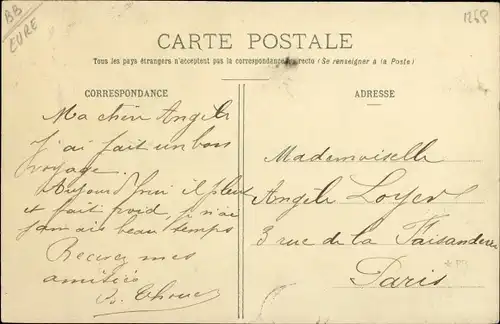 BB
CURE
1268
CARTE POSTALE
Tous les pays étrangers n'acceptent pas la correspondance au recto (Se renseigner à la Poste)
CORRESPONDANCE
Ma chère Angèle
J'ai fait un bon
voyage.
Aujourd'hui il pleut
et fait froid, je n'ai
jamais beau temps
Recevez mes
amitiés
ADRESSE
Mademoiselle
Angèle Loyer
3 rue de la Faisanderie
Paris